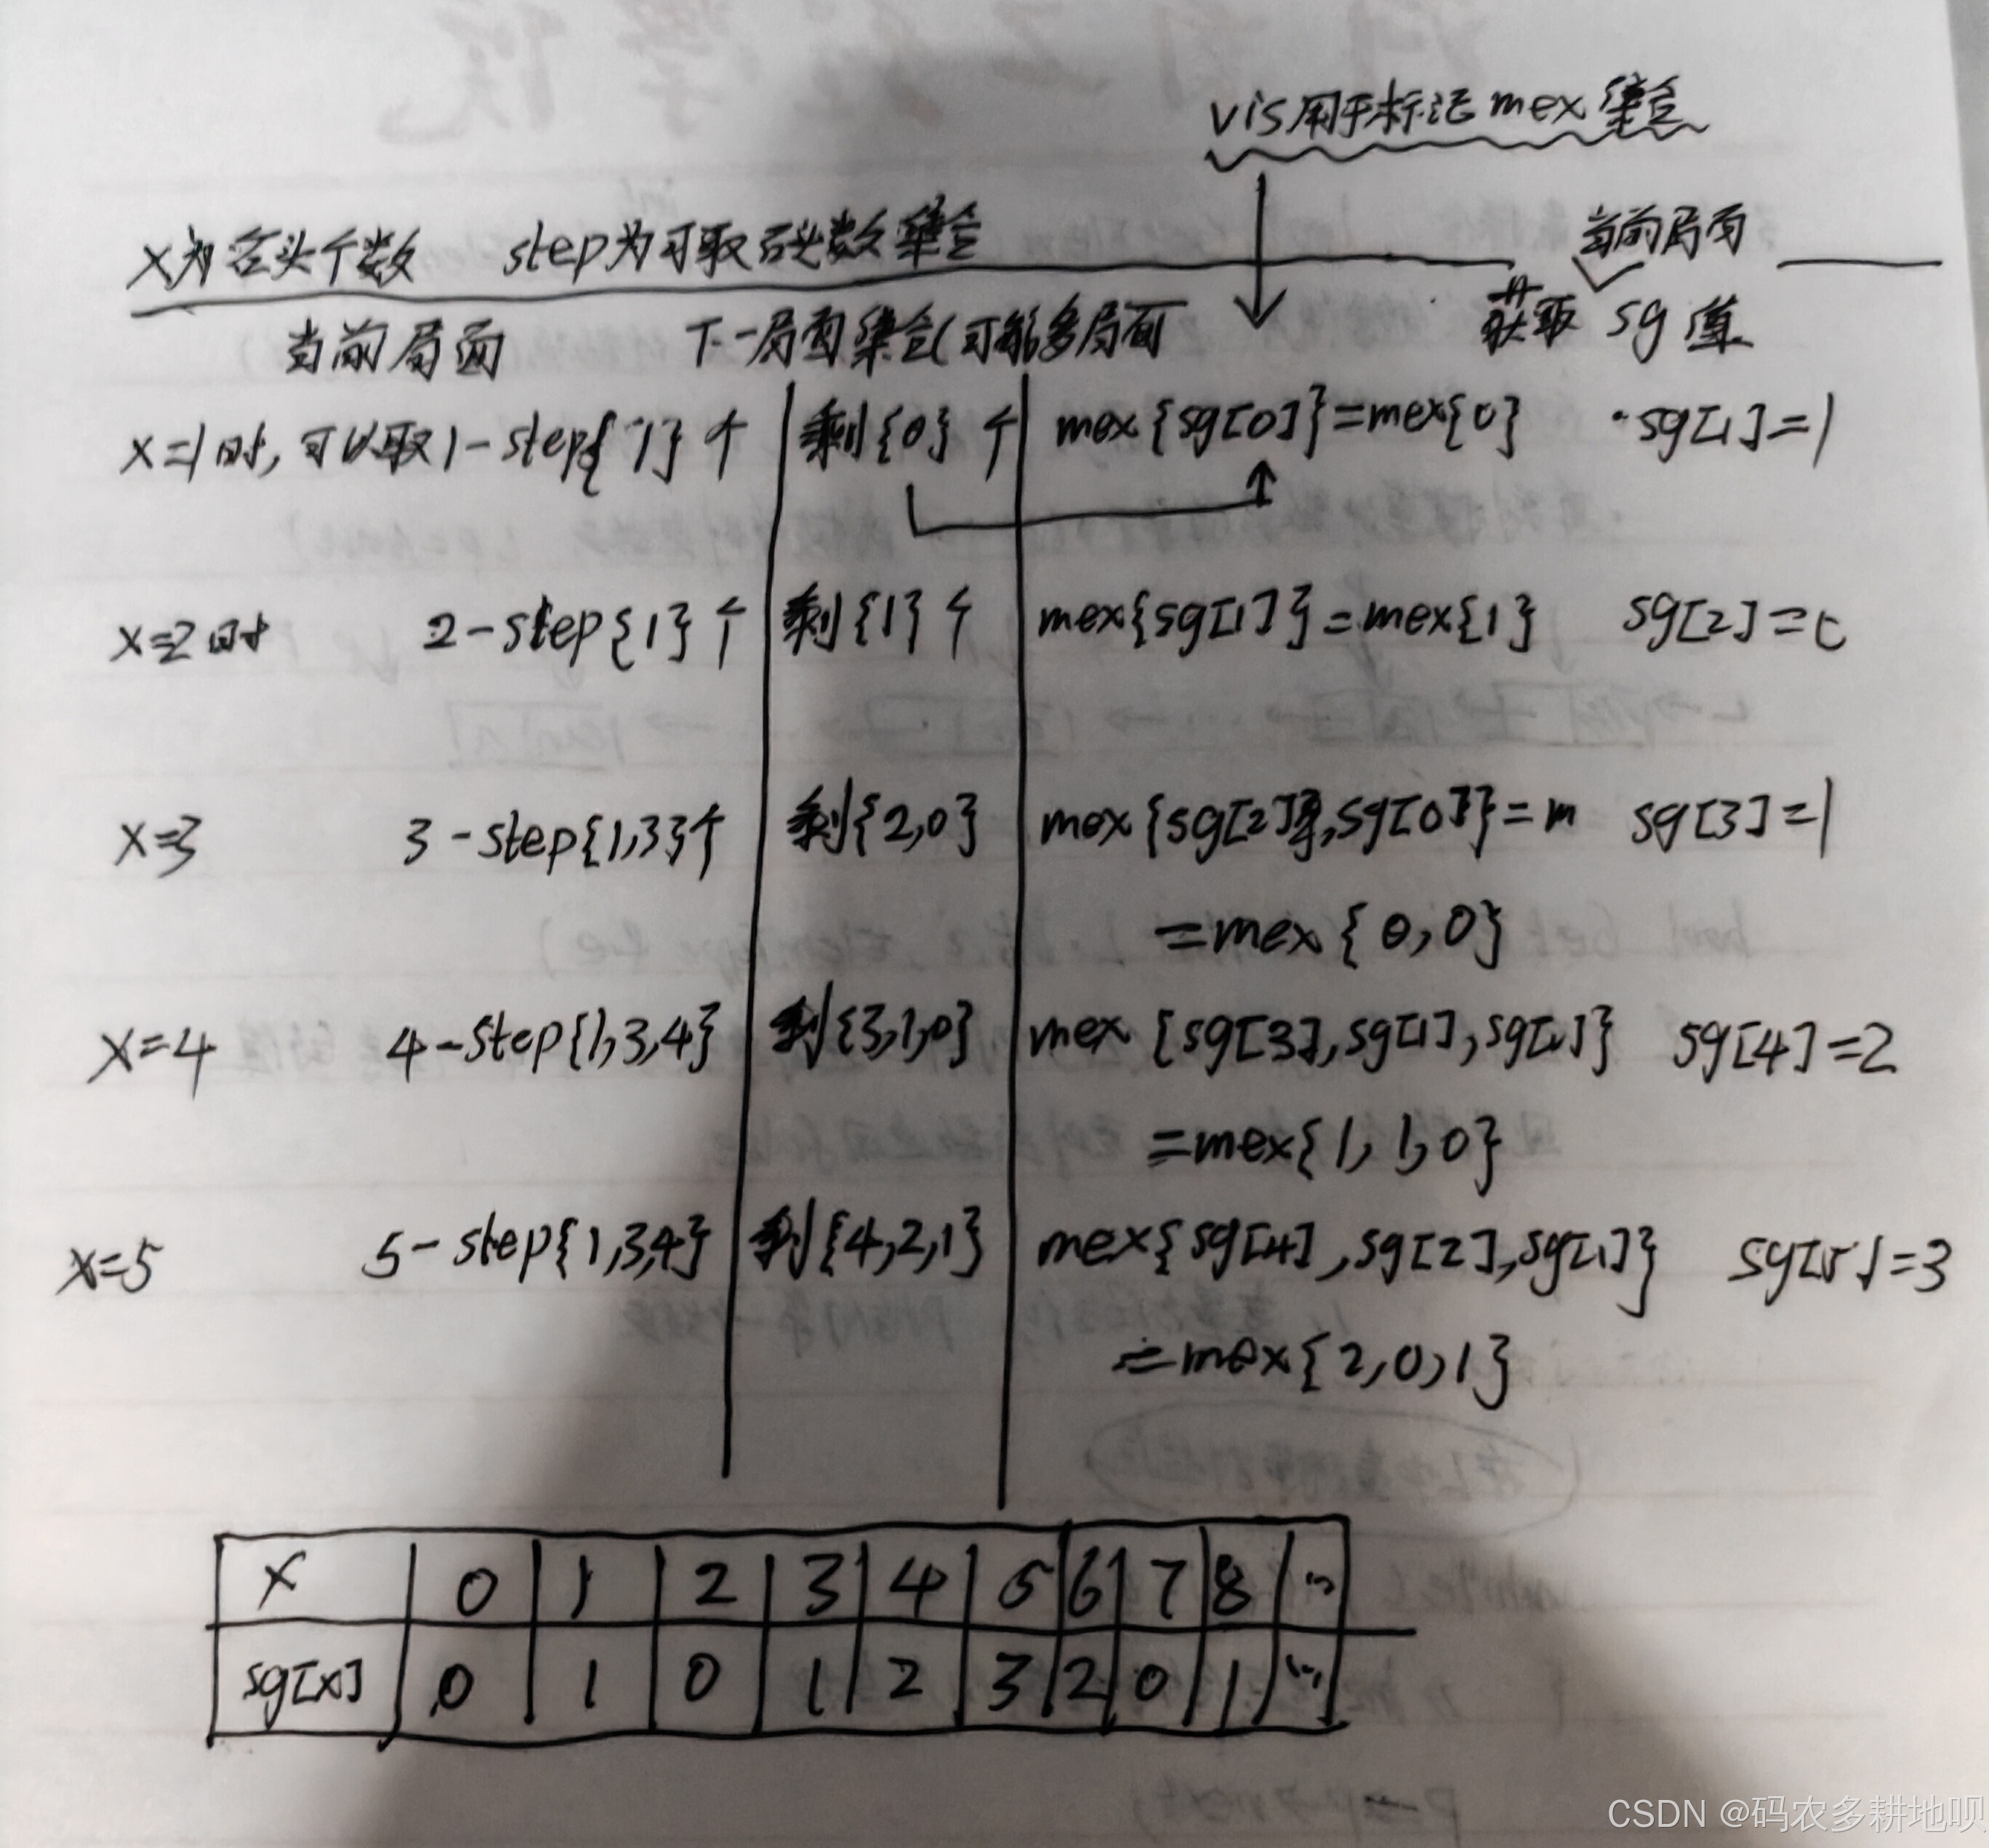 vis用于标记mex集合
x为石头个数 step为可取石头数集合 当前局面
当前局面 下一局面集合(可能多局面 获取 sg值
x=1时,可以取1-step{1}个 剩{0}个 mex{sg[0]}=mex{0} sg[1]=1
x=2时 2-step{1}个 剩{1}个 mex{sg[1]}=mex{1} sg[2]=0
x=3 3-step{1,3}个 剩{2,0} mex{sg[2],sg[0]}=m sg[3]=1
=mex{0,0}
x=4 4-step{1,3,4} 剩{3,1,0} mex{sg[3],sg[1],sg[0]} sg[4]=2
=mex{1,1,0}
x=5 5-step{1,3,4} 剩{4,2,1} mex{sg[4],sg[2],sg[1]} sg[5]=3
=mex{2,0,1}
x 0 1 2 3 4 5 6 7 8 ...
sg[x] 0 1 0 1 2 3 2 0 1 ...
CSDN @码农多耕地呗